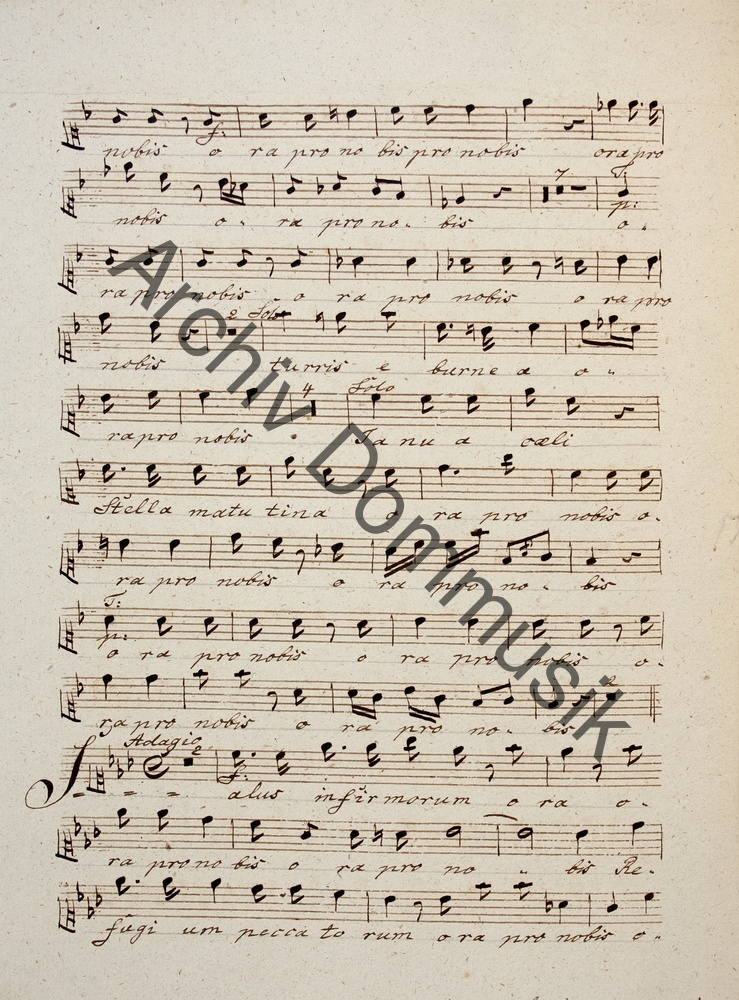 f:
nobis o ra pro no bis pro nobis ora pro
7 T:
p:
nobis o - ra pro no - bis o -
ra pro nobis o ra pro nobis o ra pro
2 Solo
nobis turris e burne a o -
4 Solo
ra pro nobis Ia nu a cæli
Stella matu tina o ra pro nobis o -
ra pro nobis o ra pro no - bis
T:
p:
o ra pro nobis o ra pro nobis o -
2
ra pro nobis o ra pro no - bis
Adagio
2
f:
S - - - alus infirmorum o ra o -
ra pro no bis o ra pro no - bis Re -
fugi um pecca to rum o ra pro nobis o -
Archiv Dommusik